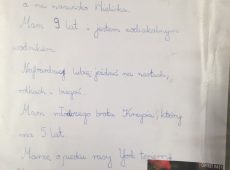 a na nazwisko Wielicka.
Mam 9 lat - jestem zodiakalnym
wodnikiem.
Najbardziej lubię jeździć na nartach,
rolkach i biegać.
Mam młodszego brata Krzysia, który
ma 5 lat.
Marzę o piesku rasy York terrier